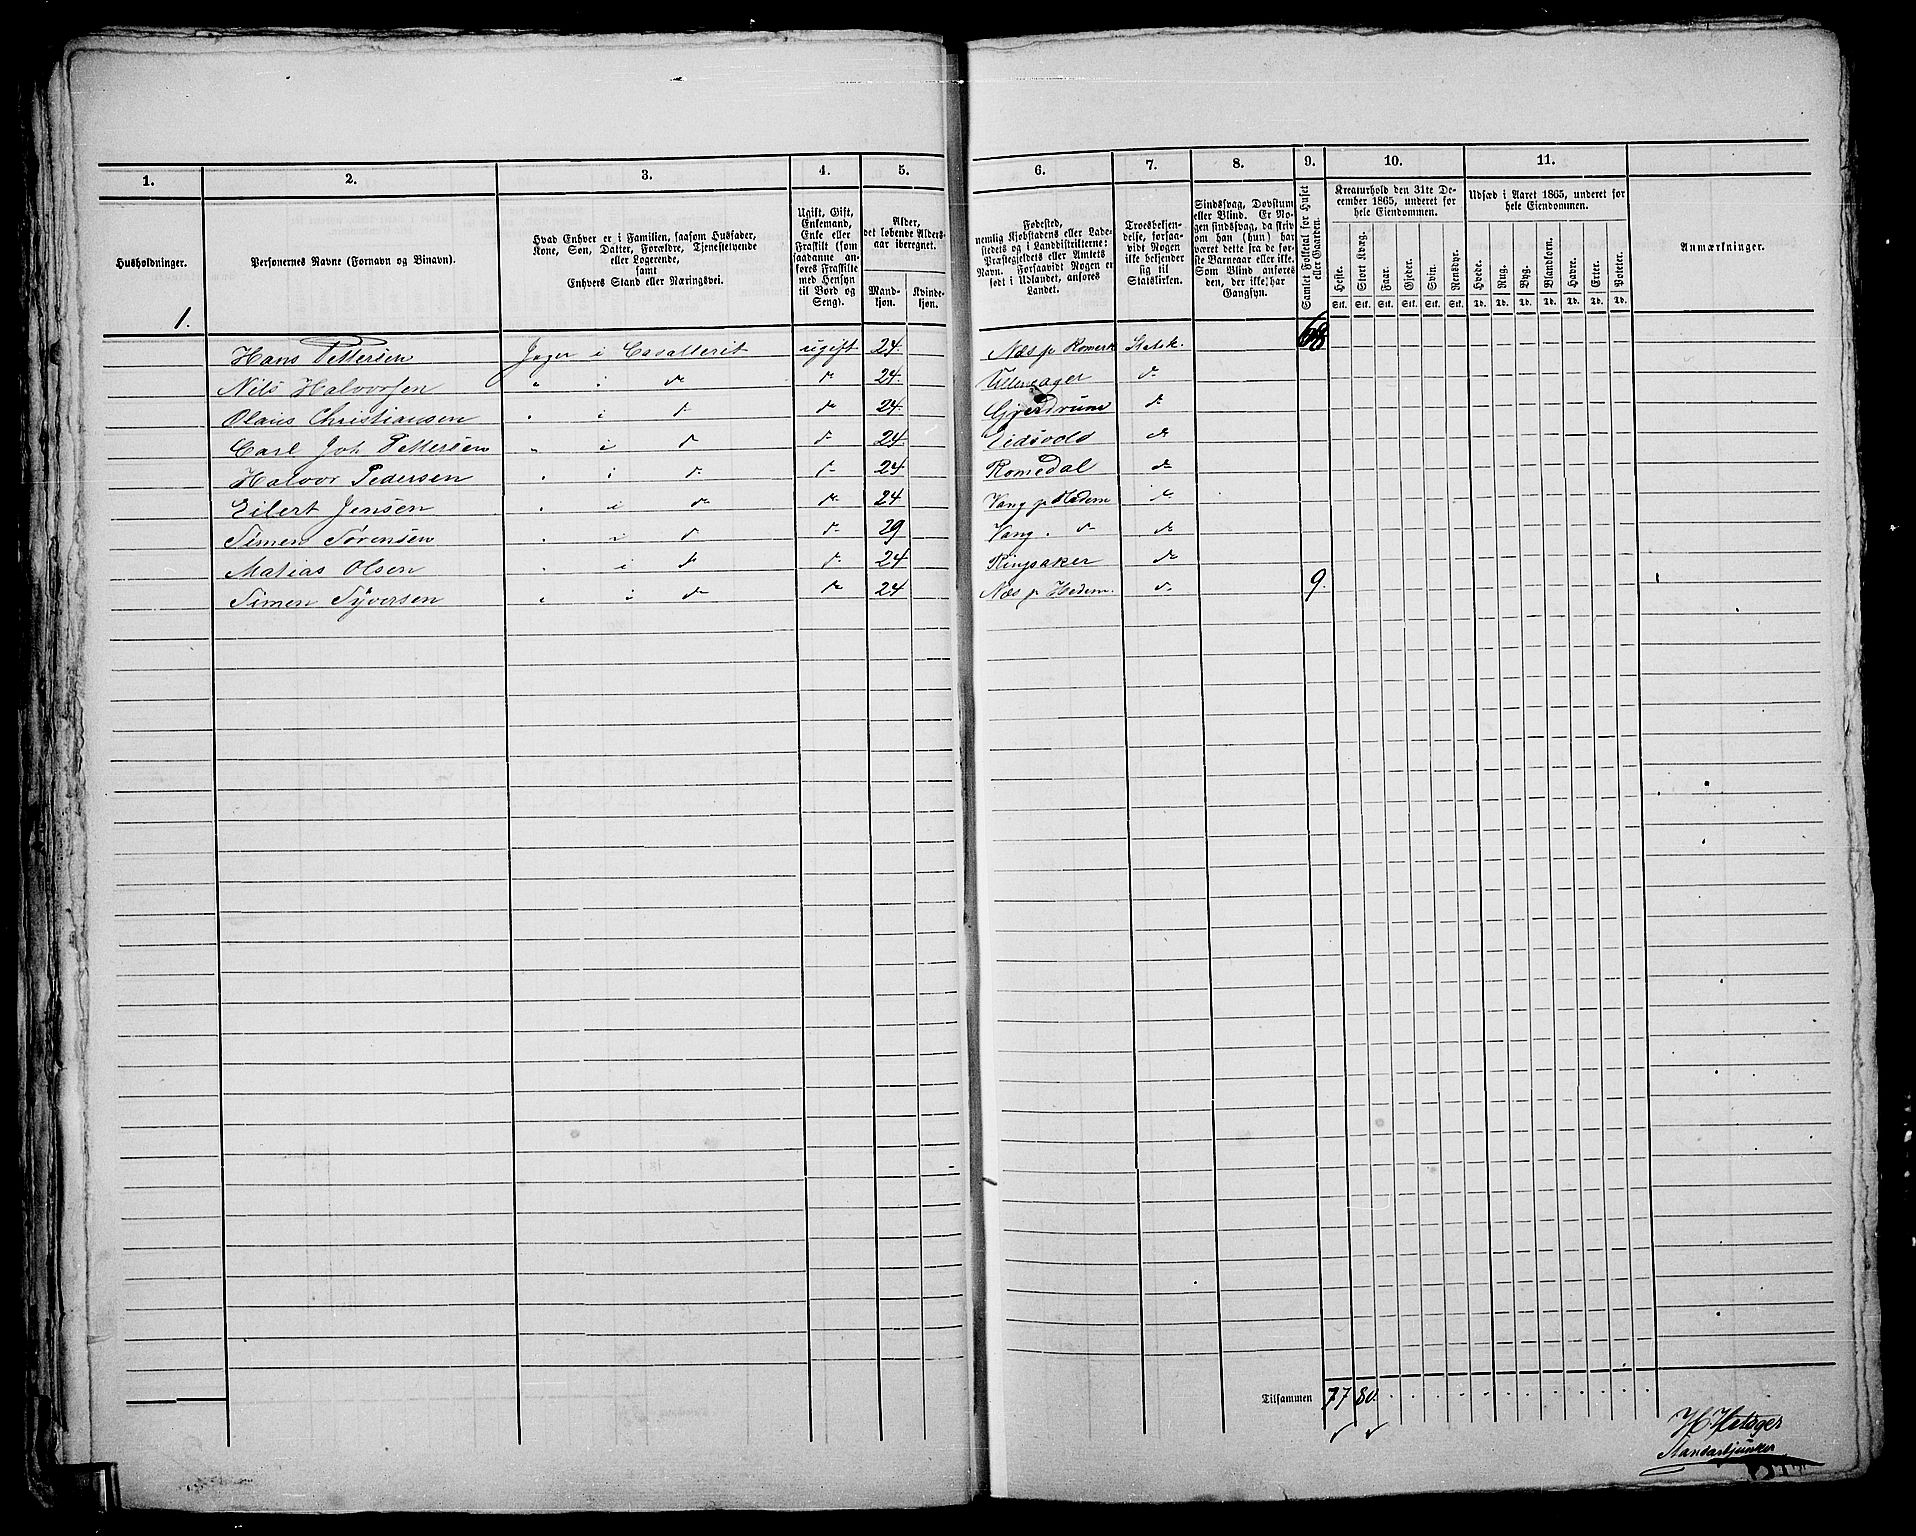 1. 2. 3. 4. 5. 6. 7. 8. 9. 10. 11.
Husholdninger.
Personernes Navne (Fornavn og Binavn).
Hvad Enhver er i Familien, saasom Husfader,
Kone, Søn, Datter, Forældre, Tjenestetyende
eller Logerende,
samt
Enhvers Stand eller Næringsvei.
Ugift, Gift,
Enkemand,
Enke eller
Fraskilt (som
saadanne an-
føres Fraskilte
med Hensyn
til Bord og
Seng).
Alder,
det løbende Alders-
aar iberegnet.
Mand-
kjøn.
Kvinde-
kjøn.
Fødested,
nemlig Kjøbstadens eller Lade-
stedets og i Landdistrikterne:
Præstegjeldets eller Amtets
Navn. Forsaavidt Nogen er
født i Udlandet, anføres
Landet.
Troesbekjen-
delse, forsaa-
vidt Nogen
ikke bekjender
sig til
Statskirken.
Sindssvag, Døvstum
eller Blind. Er No-
gen sindssvag, da skriv
om han (hun) har
været dette fra de før-
ste Barneaar eller ikke.
Som Blind anføres
den, der ikke har
Gangsyn.
Samlet Folketal for Huset
eller Gaarden.
Kreaturhold den 31te De-
cember 1865, underet for
hele Eiendommen.
Heste. Stort Kvæg. Faar. Gjeder. Svin. Rensdyr.
Stk. Stk. Stk. Stk. Stk. Stk.
Udsæd i Aaret 1865, underet for
hele Eiendommen.
Hvede. Rug. Byg. Blandkorn. Havre. Erter. Poteter.
Td. Td. Td. Td. Td. Td. Td.
Anmærkninger.
1.
Hans Pettersen Jæger i Cavalleriet ugift 24. Næs p Romerk Statsk.
Nils Halvorsen " i do do 24. Ullensager do
Olaus Christiansen " i do do 24. Gjerdrum do
Carl Joh Pettersen " i do do 24. Eidsvold do
Halvor Pedersen " i do do 24 Romedal do
Eilert Jensen " i do do 24 Vang p Hedem do
Simen Sørensen " i do do 29 Vang " do do
Matias Olsen " i do do 24. Ringsaker do
Simen Syversen " i do do 24 Næs p Hedem. do 9.
Tilsammen 77 80.
H. Hetager
Standartjunker